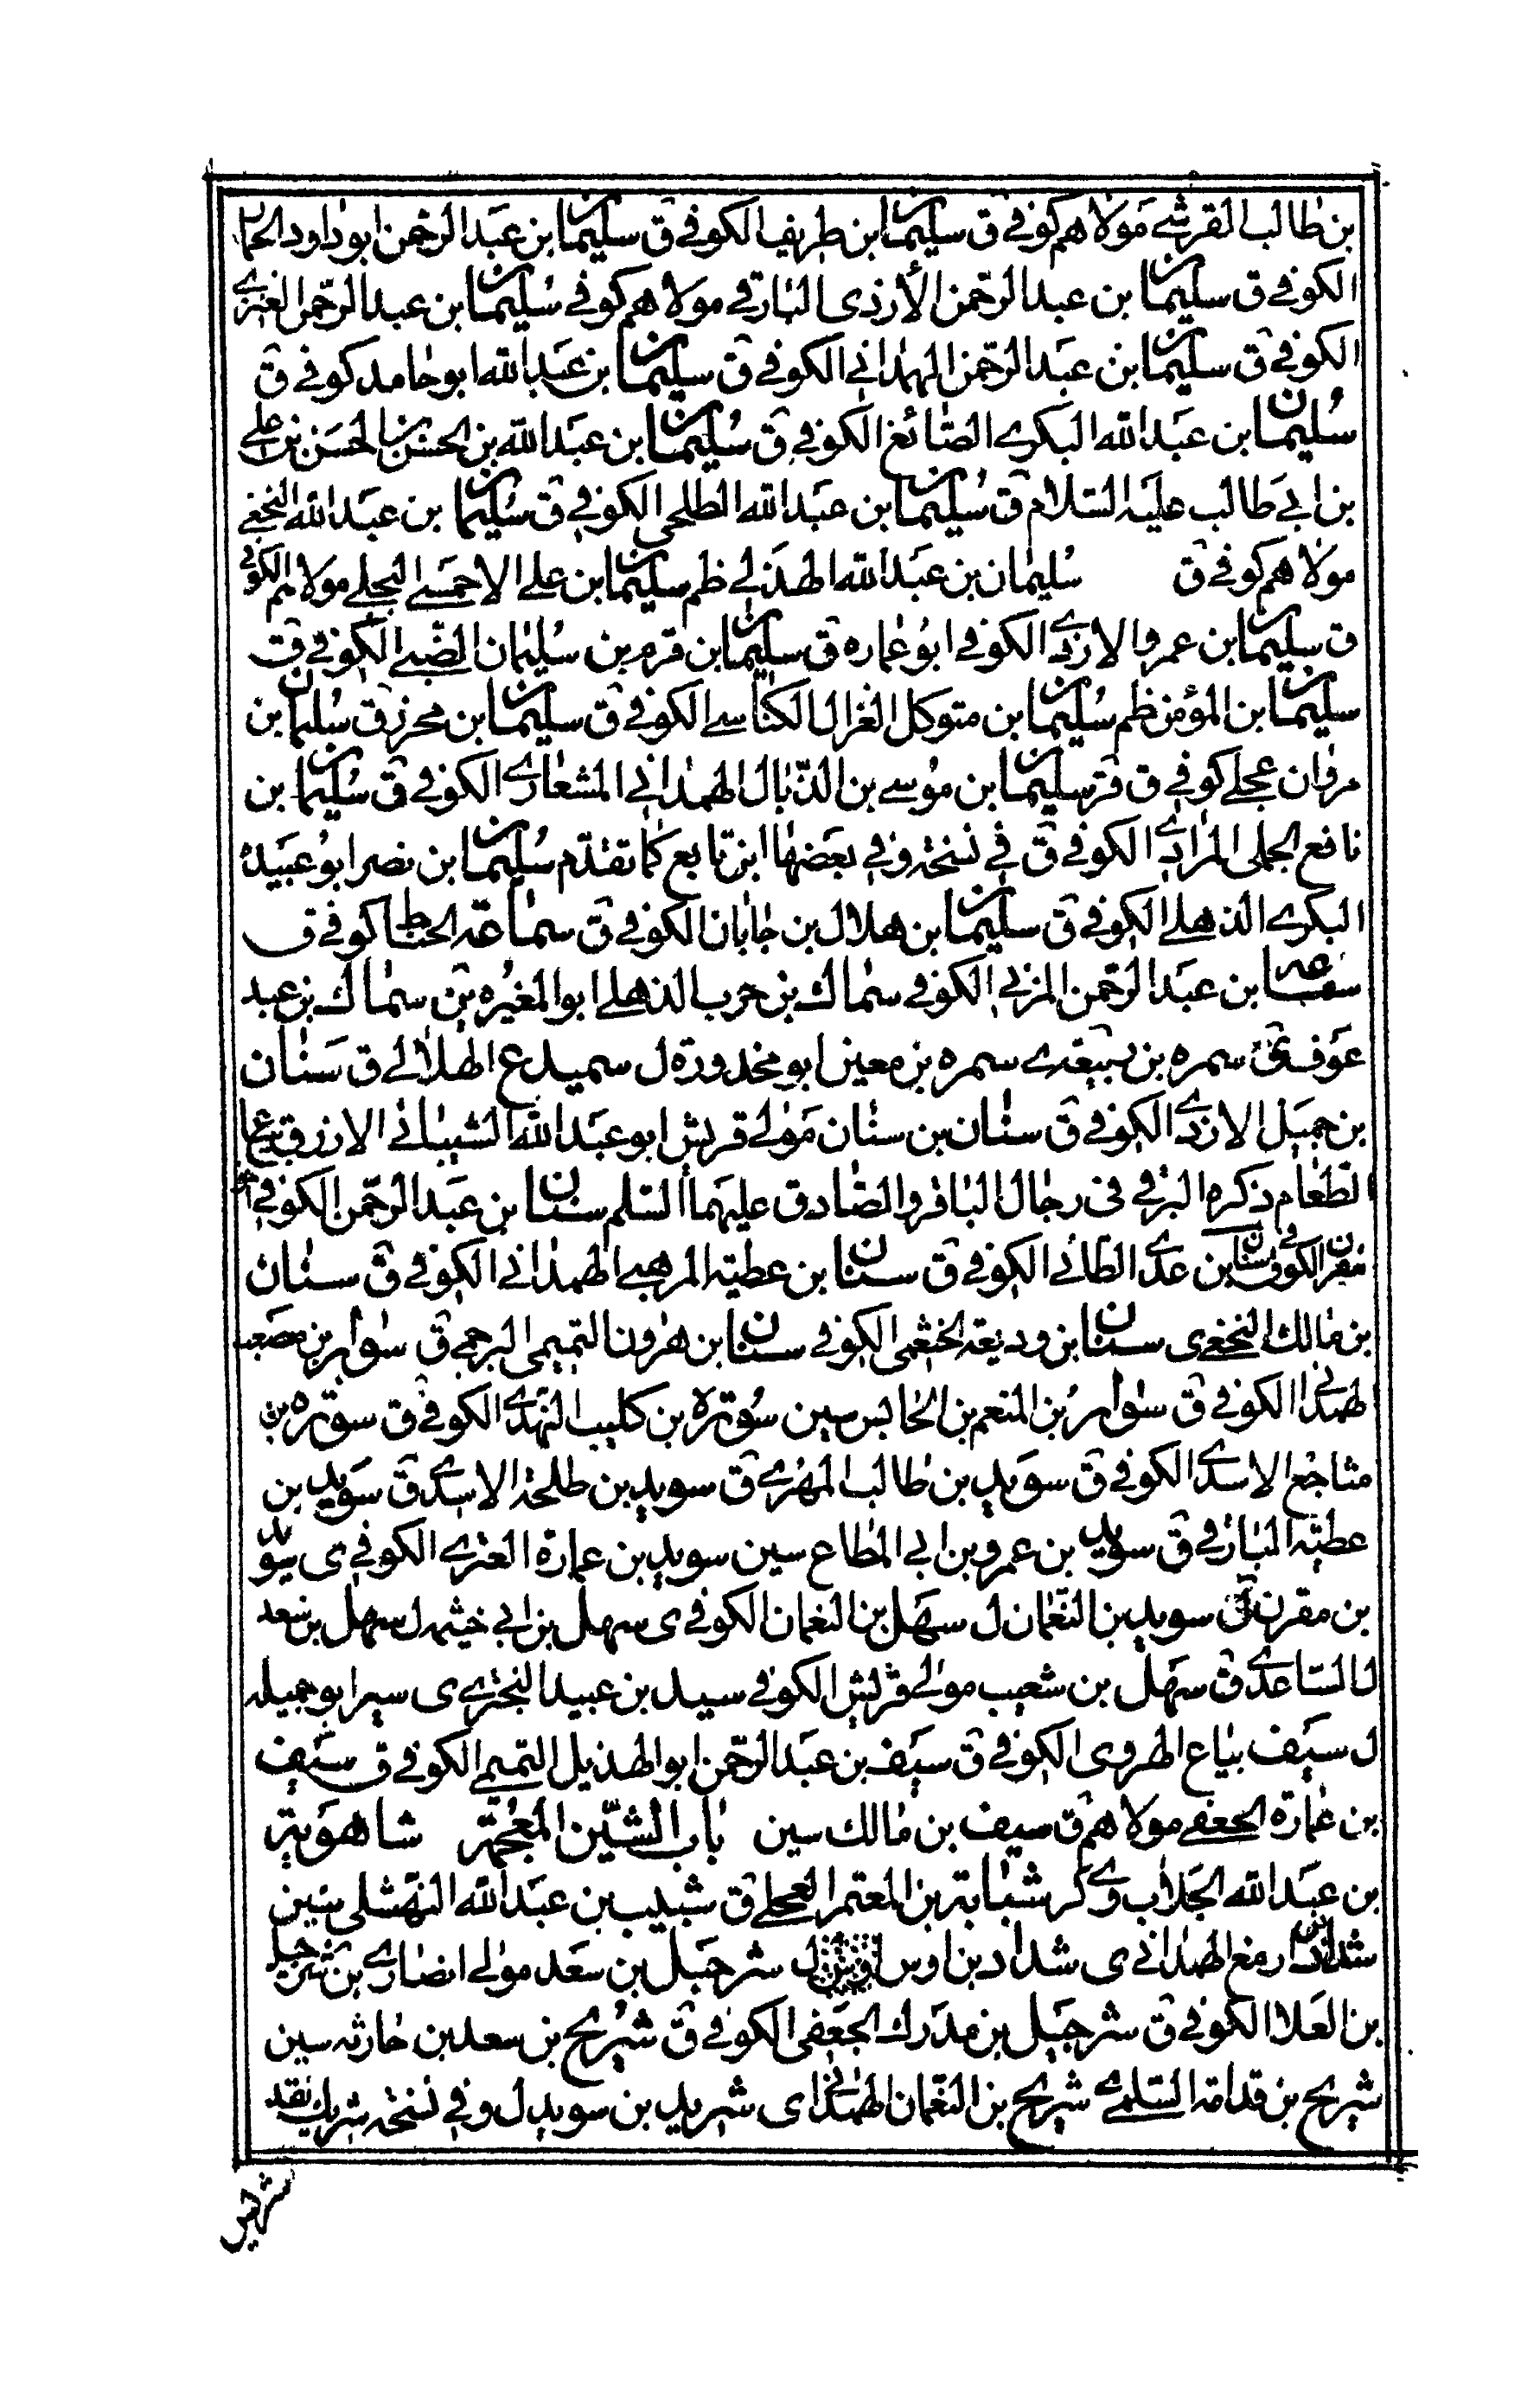 بن طالب القرشے مولاهم كوفے ق سليمان بن طريف الكوفے ق سليمان بن عبد الرحمن ابو داود الحمار
الكوفے ق سليمان بن عبد الرحمن الأزدى البارقے مولاهم كوفے سليمان بن عبد الرحمن العنزے
الكوفے ق سليمان بن عبد الرحمن الهمدانے الكوفے ق سليمان بن عبد الله ابو حامد كوفے ق
سليمان بن عبد الله البكرے الصائغ الكوفے ق سليمان بن عبد الله بن الحسن بن الحسن بن على
بن ابے طالب عليه السلام ق سليمان بن عبد الله الطلحى الكوفے ق سليمان بن عبد الله النخعے
مولاهم كوفے ق سليمان بن عبد الله الهذلے ظم سليمان بن على الاحمسے البجلے مولاهم الكوفے
ق سليمان بن عمرو الازدے الكوفے ابو عماره ق سليمان بن قرم بن سليمان الضبے الكوفے ق
سليمان بن المؤمن ظم سليمان بن متوكل الغزال الكناسے الكوفے ق سليمان بن محرز ق سليمان بن
مروان عجلے كوفے ق قر سليمان بن موسے بن الذبال الهمدانے المشعارے الكوفے ق سليمان بن
نافع الجملى المرادے الكوفے ق فے نسخه وفے بعضها ابن تابع كما تقدم سليمان بن نصر ابو عبيده
البكرے الذهلے الكوفے ق سليمان بن هلال بن جابان الكوفے ق سماعة الحناط كوفے ق
سماعه بن عبد الرحمن المزنے الكوفے سماك بن حرب الذهلے ابو المغيره ين سماك بن عبد
عوف ى سمره بن ربيعه ے سمره بن معين ابو محذورة ل سميدع الهلالے ق سنان
بن جميل الازدے الكوفے ق سنان بن سنان مولے قريش ابو عبد الله الشيبانے الازرق بياع
الطعام ذكره البرقے فى رجال الباقر والصادق عليهما السلم سنان بن عبد الرحمن الكوفے
مقرن الكوفے سنان بن عدے الطائے الكوفے ق سنان بن عطيه المرهبے الهمدانے الكوفے ق سنان
بن مالك النخعے ى سنان بن وديعة الخثعمى الكوفے سنان بن هرون التميمى البرجمے ق سوار بن مصعب
الهمدانے الكوفے ق سوار بن المنعم بن الحابس سين سورة بن كليب النهدے الكوفے ق سوره بن
مشاجع الاسدے الكوفے ق سويد بن طالب المهرے ق سويد بن طلحة الاسدے ق سويد بن
عطيه البارقے ق سويد بن عمرو بن ابى المطاع سين سويد بن عمارة العنزے الكوفے ى سويد
بن مقرن سويد بن النعمان ل سهل بن النعمان الكوفے ى سهل بن ابے خيثمه ل سهل بن سعد
الساعدے ق سهل بن شعيب مولے قريش الكوفے سيد بن عبيد البخترے ى سير ابو جميله
ل سيف بياع الهروى الكوفے ق سيف بن عبد الرحمن ابو الهذيل التميمے الكوفے ق سيف
بن عمارة الجعفے مولاهم ق سيف بن مالك سين باب الشين المعجمة شاهوية
بن عبد الله الجلاب دے كر شبابة بن المعتمر العجلے ق شبيب بن عبد الله النهشلى سين
شداد بن ازمع الهمدانے ى شداد بن اوس ل شرحبيل بن سعد مولے انصارے بن شرحبيل
بن العلا الكوفے ق شرحبيل بن مدرك الجعفى الكوفے ق شريح بن سعد بن حارثه سين
شريح بن قدامة السلمے شريح بن النعمان الهمدانے ى شريد بن سويد ل وفے نسخه شريك بقد
شهير